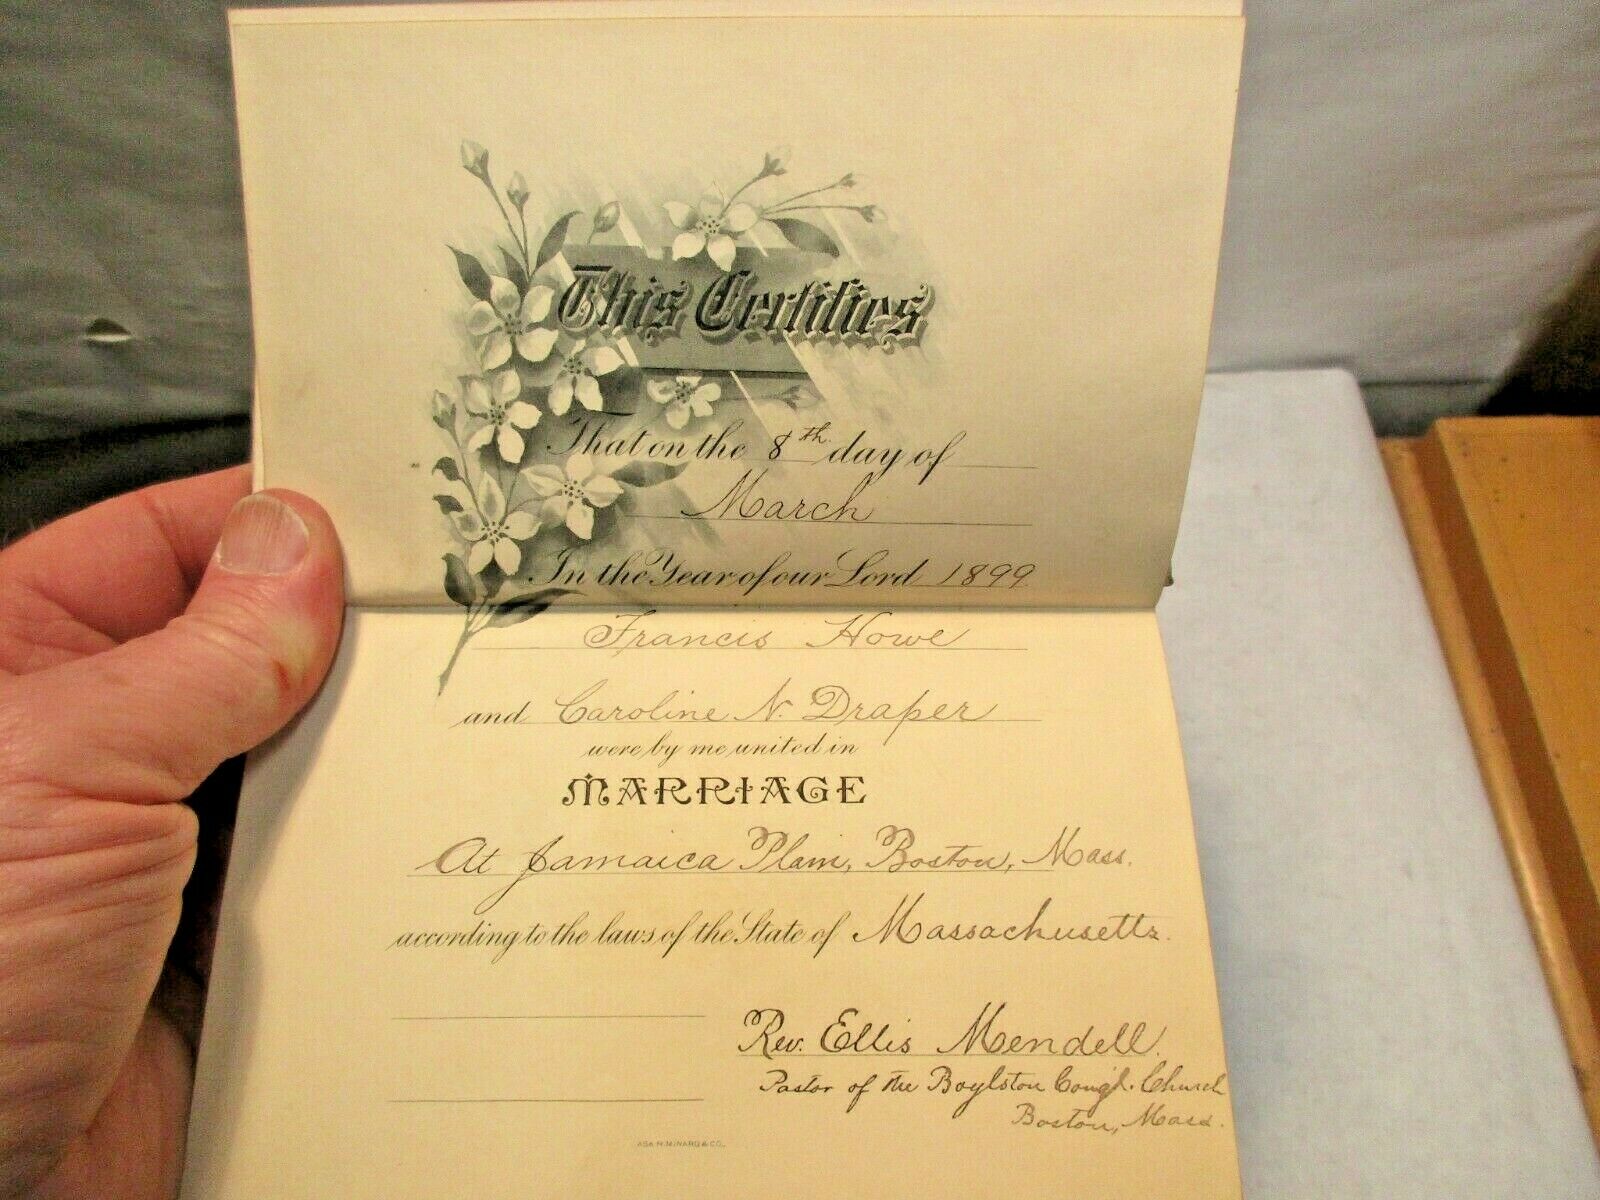 This Certifies
That on the 8th. day of
March
In the Year of our Lord 1899
Francis Howe
and Caroline N. Draper
were by me united in
MARRIAGE
At Jamaica Plain, Boston, Mass.
according to the laws of the State of Massachusetts.
Rev. Ellis Mendell.
Pastor of the Boylston Cong'l. Church
Boston, Mass.
ASA H. MINARD & CO.